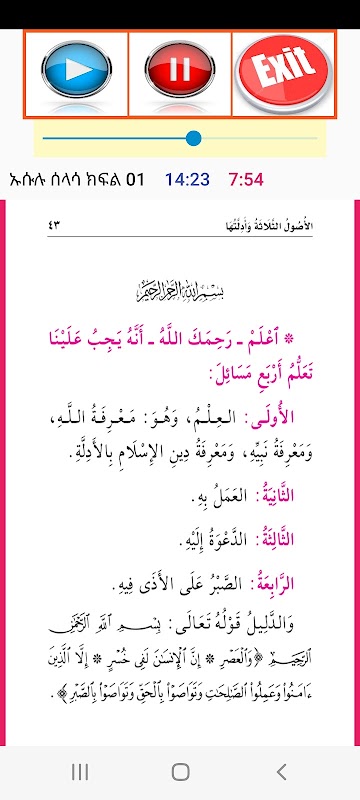 Exit
ኡሱሉ ሰላሳ ክፍል 01 14:23 7:54
الأُصُولُ الثَّلَاثَةُ وَأَدِلَّتُهَا ٤٣
بِسْمِ اللَّهِ الرَّحْمَٰنِ الرَّحِيمِ
* اعْلَمْ ـ رَحِمَكَ اللَّهُ ـ أَنَّهُ يَجِبُ عَلَيْنَا
تَعَلُّمُ أَرْبَعِ مَسَائِلَ:
الأُولَى: العِلْمُ، وَهُوَ: مَعْرِفَةُ اللَّهِ،
وَمَعْرِفَةُ نَبِيِّهِ، وَمَعْرِفَةُ دِينِ الإِسْلَامِ بِالأَدِلَّةِ.
الثَّانِيَةُ: العَمَلُ بِهِ.
الثَّالِثَةُ: الدَّعْوَةُ إِلَيْهِ.
الرَّابِعَةُ: الصَّبْرُ عَلَى الأَذَى فِيهِ.
وَالدَّلِيلُ قَوْلُهُ تَعَالَى: بِسْمِ اللَّهِ الرَّحْمَٰنِ
الرَّحِيمِ ﴿وَٱلْعَصْرِ * إِنَّ ٱلْإِنسَٰنَ لَفِى خُسْرٍ * إِلَّا ٱلَّذِينَ
ءَامَنُوا۟ وَعَمِلُوا۟ ٱلصَّٰلِحَٰتِ وَتَوَاصَوْا۟ بِٱلْحَقِّ وَتَوَاصَوْا۟ بِٱلصَّبْرِ﴾.